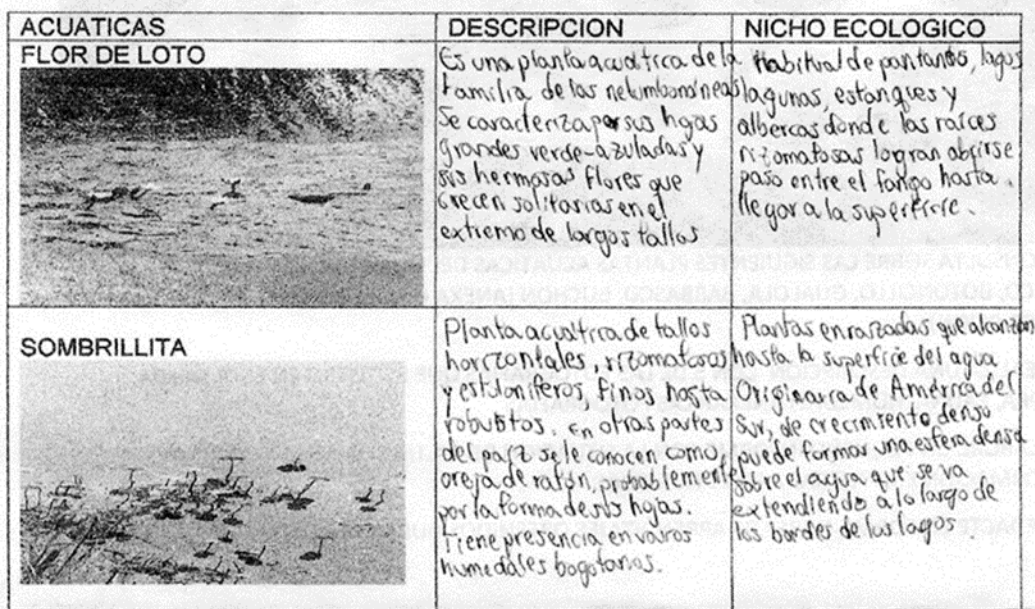 ACUATICAS
DESCRIPCION
NICHO ECOLOGICO
FLOR DE LOTO
Es una planta acuatica de la
familia de las nelumbonáneas
Se caracteriza por sus hojas
grandes verde-azuladas y
sus hermosas flores que
crecen solitarias en el
extremo de largos tallos
Habitual de pantanos, lagos
lagunas, estanques y
albercas donde las raíces
rizomatosas logran abrirse
paso entre el fango hasta
llegar a la superficie.
SOMBRILLITA
Planta acuatica de tallos
horizontales, rizomatosos
y estoloniferos finos hasta
robustos. En otras partes
del paiz se le conocen como,
oreja de ratón, probablemente
por la forma de sus hojas.
Tiene presencia en varios
humedales bogotanos.
Plantas enraizadas que alcanzan
hasta la superficie del agua
Originaria de América del
Sur, de crecimiento denso
puede formar una esfera densa
sobre el agua que se va
extendiendo a lo largo de
los bordes de los lagos
CONSULTA SOBRE LAS SIGUIENTES PLANTAS ACUATICAS DE
BOTONCILLO, GUALOLA, BARBASCO, BUCHON (ANEXA